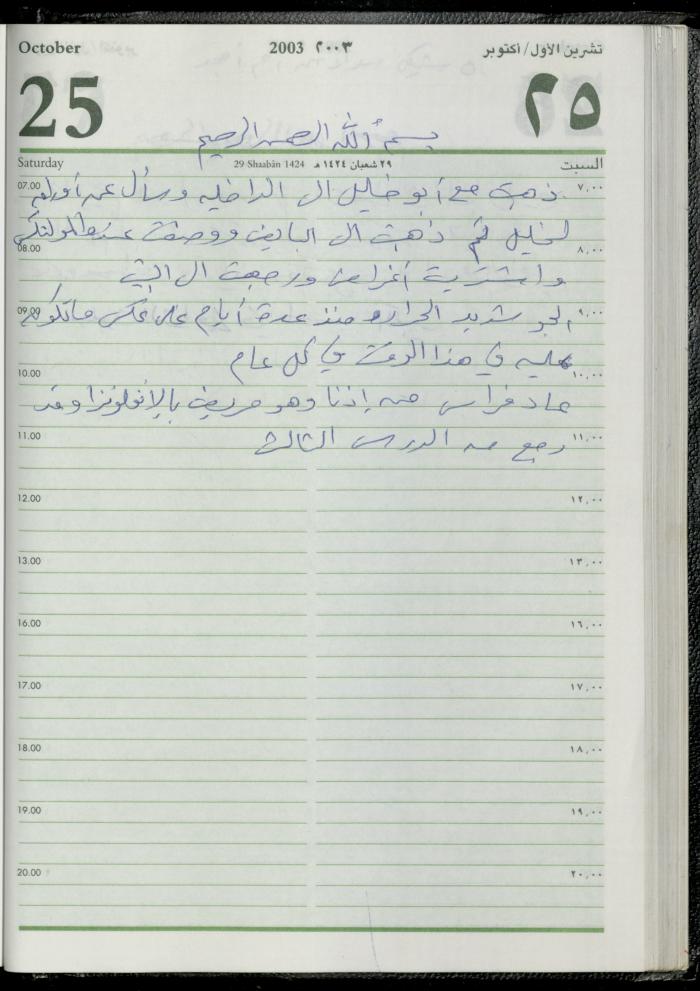 October 2003 ٢٠٠٣ تشرين الأول/أكتوبر
25 ٢٥
بسم الله الرحمن الرحيم
Saturday 29 Shaabân 1424 ٢٩ شعبان ١٤٢٤ هـ السبت
07.00 ٧,٠٠
ذهبت مع أبو خليل الى الداخليه وسأل عن أوراق
لخليل ثم ذهبت الى البايض ووصفت عنده
08.00 ٨,٠٠
واشتريت أغراض ورجعت الى البيت
09.00 ٩,٠٠
الجو شديد الحراره منذ عدة أيام على عكس ماتكون
عليه في هذا الوقت في كل عام
10.00 ١٠,٠٠
عاد فراس من إذنا وهو مريض بالإنفلونزا وقد
11.00 ١١,٠٠
رجع من الدرس الثالث
12.00 ١٢,٠٠
13.00 ١٣,٠٠
16.00 ١٦,٠٠
17.00 ١٧,٠٠
18.00 ١٨,٠٠
19.00 ١٩,٠٠
20.00 ٢٠,٠٠